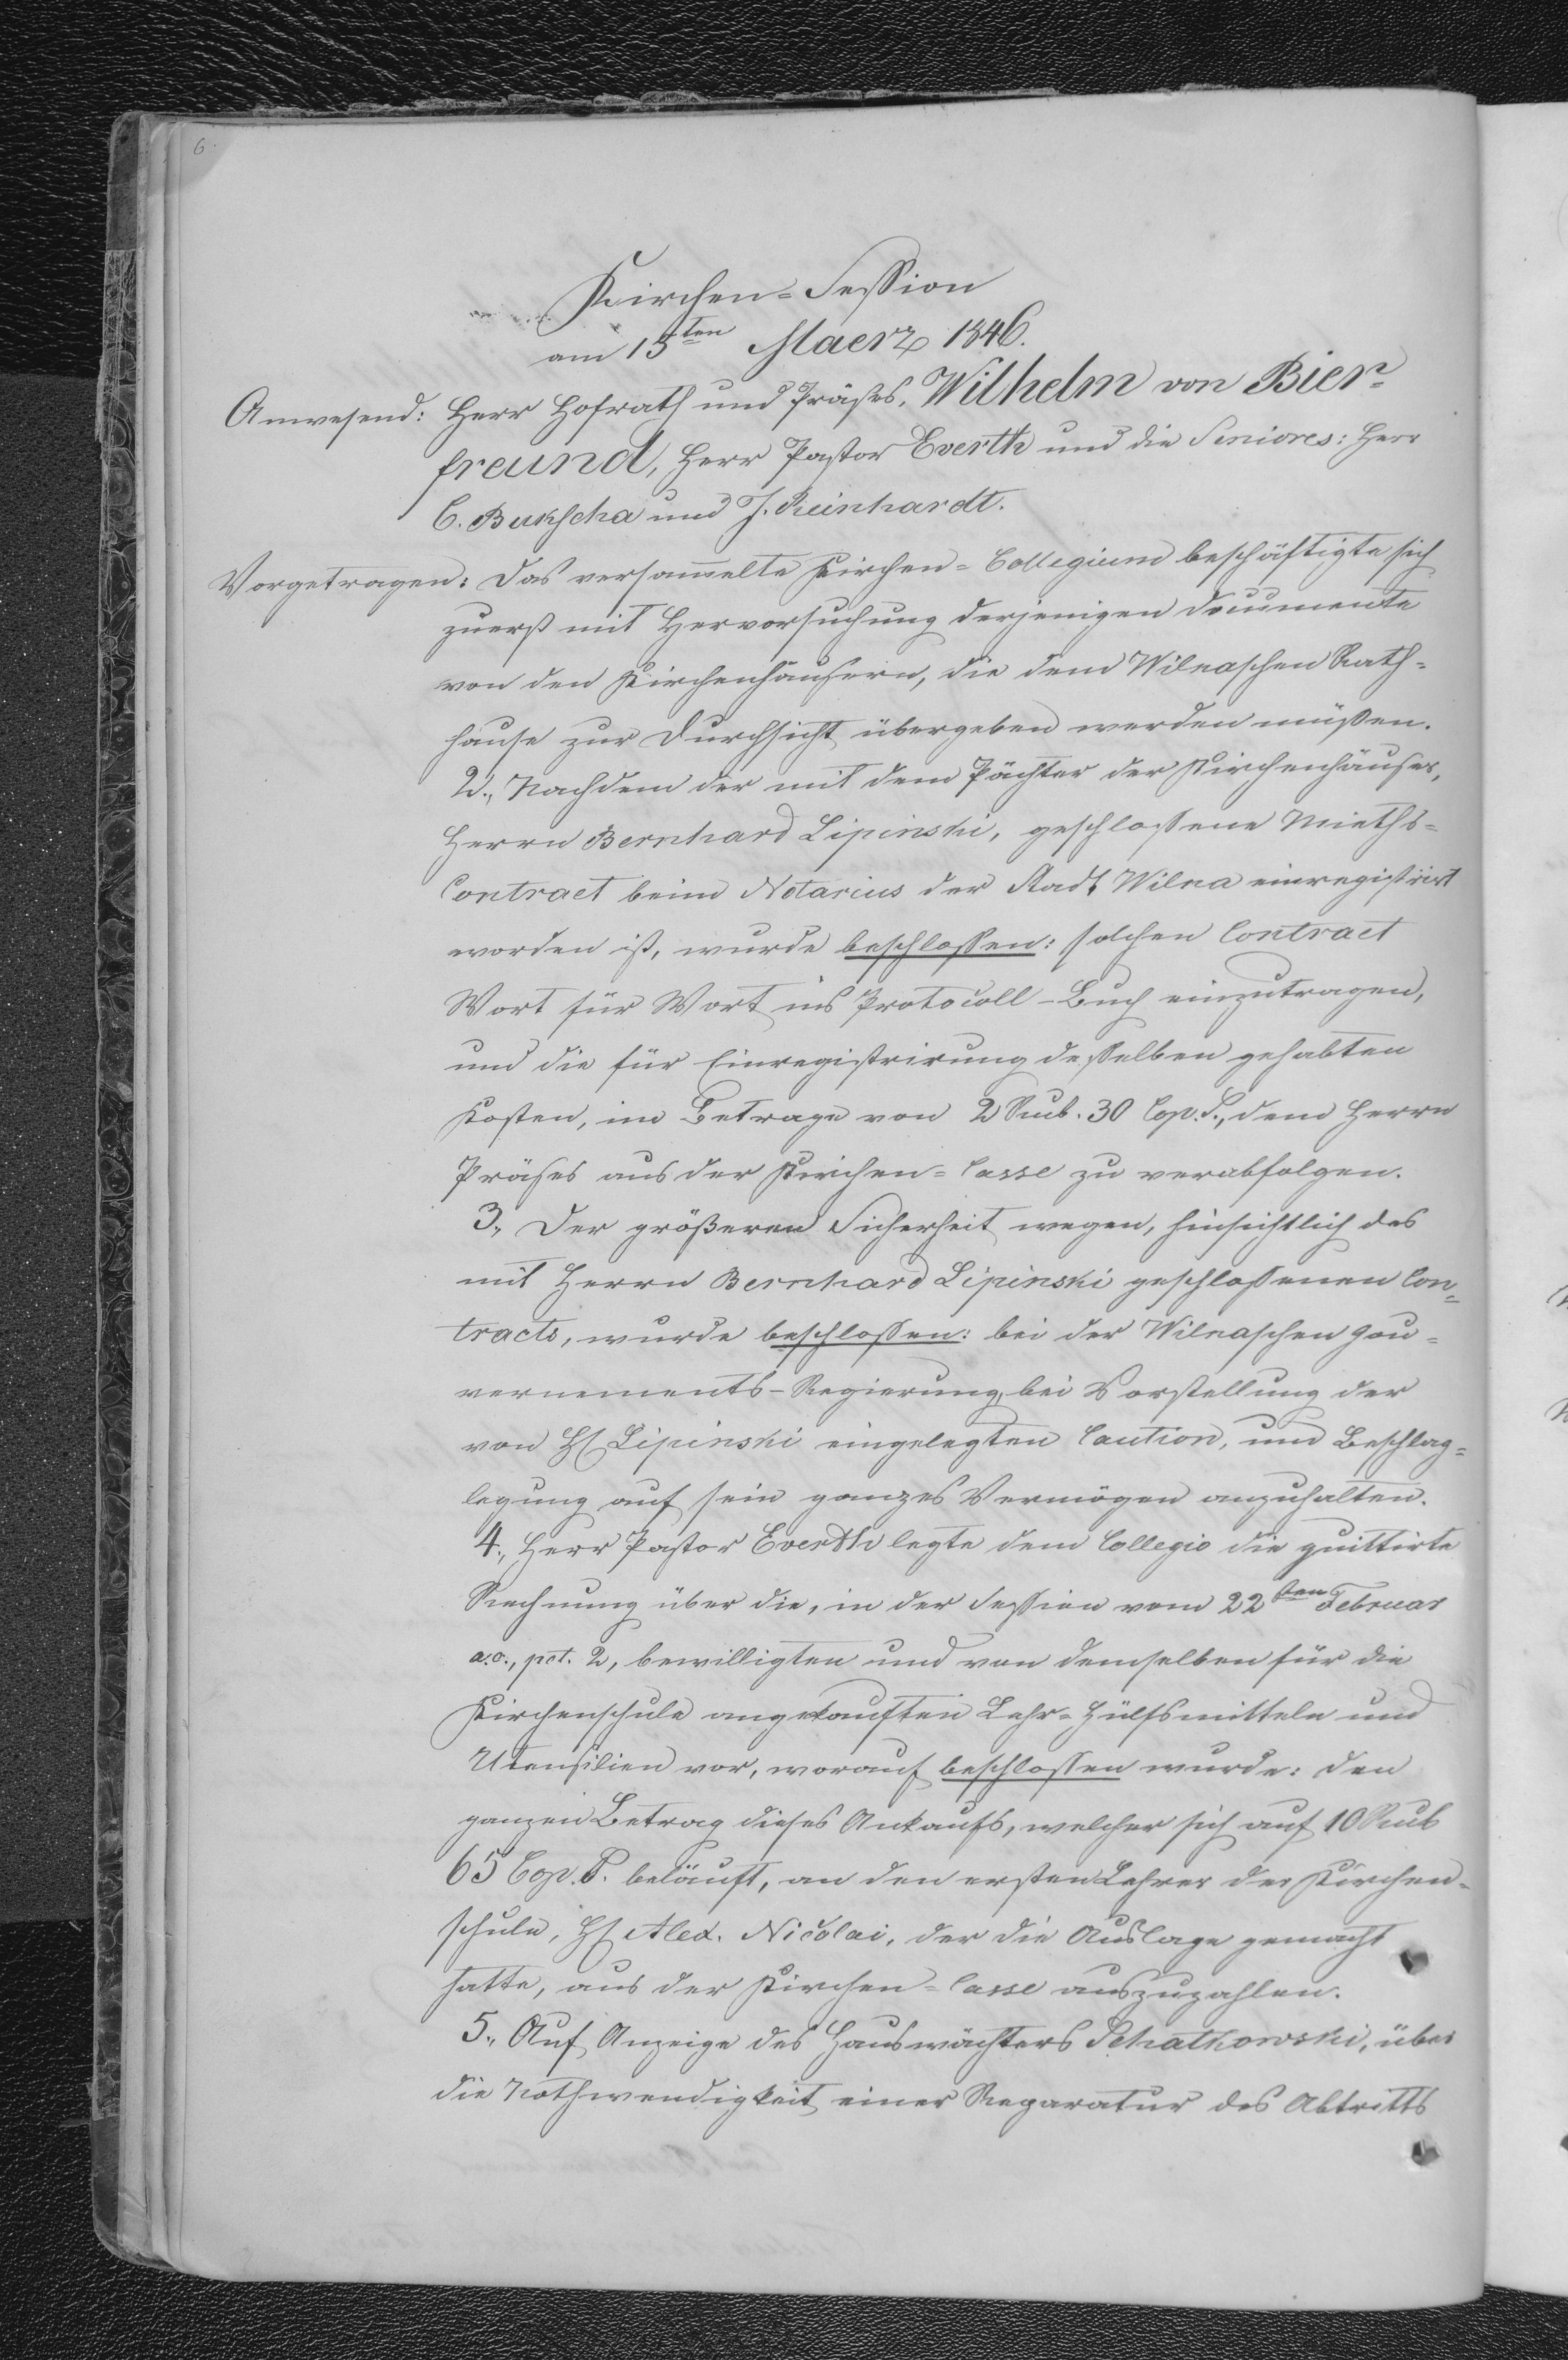 6.
Kirchen-Session
am 15ten Maerz 1846.
Anwesend: Herr Hofrath und Präses, Wilhelm von Bier-
freund, Herr Pastor Everth und die Seniores: Herr
C. Bukscha und J. Reinhardt.
Vorgetragen: Das versam̄elte Kirchen-Collegium beschäftigte sich
zuerst mit Hervorsuchung derjenigen Documente
von den Kirchenhäusern, die dem Wilnaschen Rath-
hause zur Durchsicht übergeben werden müßen.
2., Nachdem der mit dem Pächter der Kirchenhäuser,
Herrn Bernhard Lipinski, geschloßene Mieths-
Contract beim Notarius der Stadt Wilna einregistrirt
worden ist, wurde beschloßen: solchen Contract
Wort für Wort ins Protocoll-Buch einzutragen,
und die für Einregistrirung deßelben gehabten
Kosten, im Betrage von 2 Rub. 30 Cop. S., dem Herrn
Präses aus der Kirchen-Casse zu verabfolgen.
3., Der größeren Sicherheit wegen, hinsichtlich des
mit Herrn Bernhard Lipinski geschloßenen Con-
tracts, wurde beschloßen: bei der Wilnaschen Gou-
vernements-Regierung, bei Vorstellung der
von H. Lipinski eingelegten Caution, um Beschlag-
legung auf sein ganzes Vermögen anzuhalten.
4., Herr Pastor Everth legte dem Collegio die quittirte
Rechnung über die, in der Session vom 22ten Februar
a.c., pct. 2, bewilligten und von demselben für die
Kirchenschule angekauften Lehr-Hülfsmitteln und
Utensilien vor, worauf beschloßen wurde: den
ganzen Betrag dieses Ankaufs, welcher sich auf 10 Rub
65 Cop. S. beläuft, an den ersten Lehrer der Kirchen-
schule, H. Alex. Nicolai, der die Auslage gemacht
hatte, aus der Kirchen-Casse auszuzahlen.
5., Auf Anzeige des Hauswächters Schatkowski, über
die Nothwendigkeit einer Reparatur des Abtritts